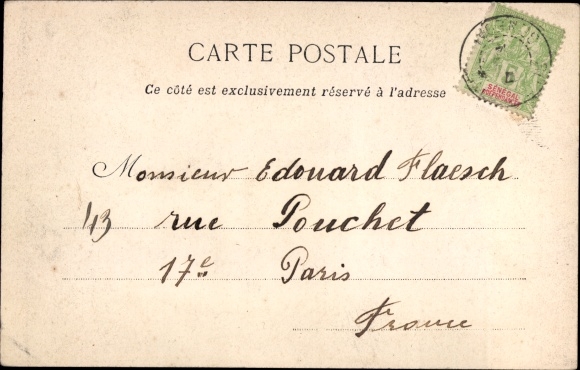 CARTE POSTALE
Ce côté est exclusivement réservé à l'adresse
SÉNÉGAL
Monsieur Edouard Flaesch
43 rue Pouchet
17e Paris
France